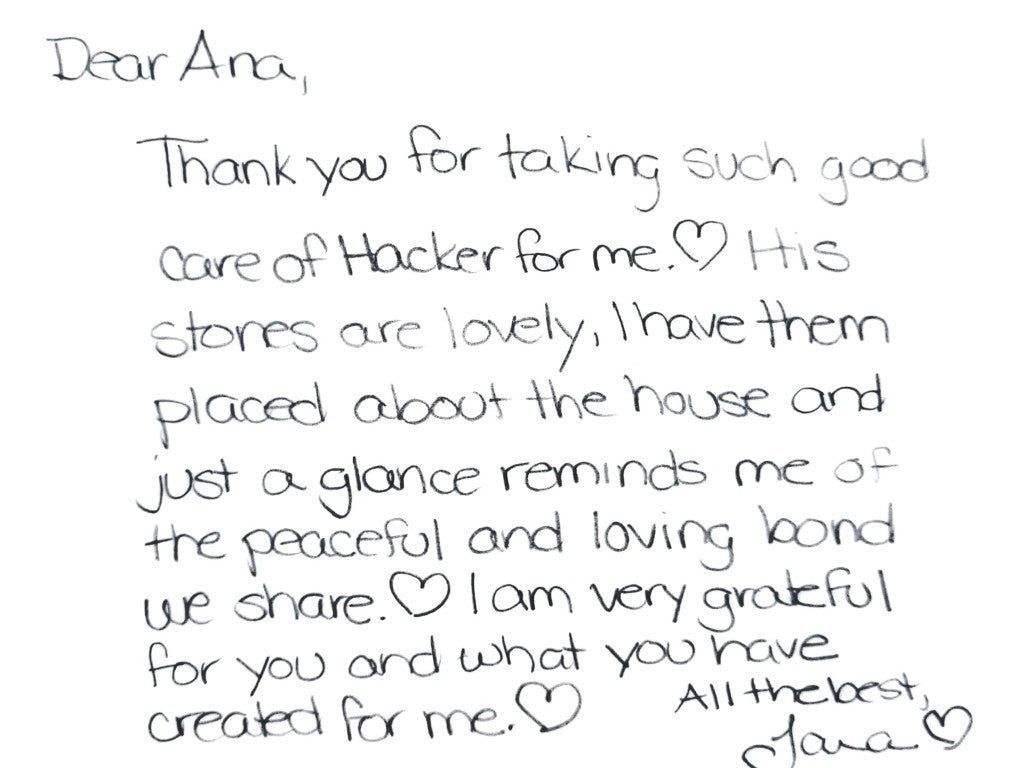 Dear Ana,
Thank you for taking such good
care of Hacker for me.♡ His
stones are lovely, I have them
placed about the house and
just a glance reminds me of
the peaceful and loving bond
we share.♡ I am very grateful
for you and what you have
created for me.♡ All the best,
Tara ♡